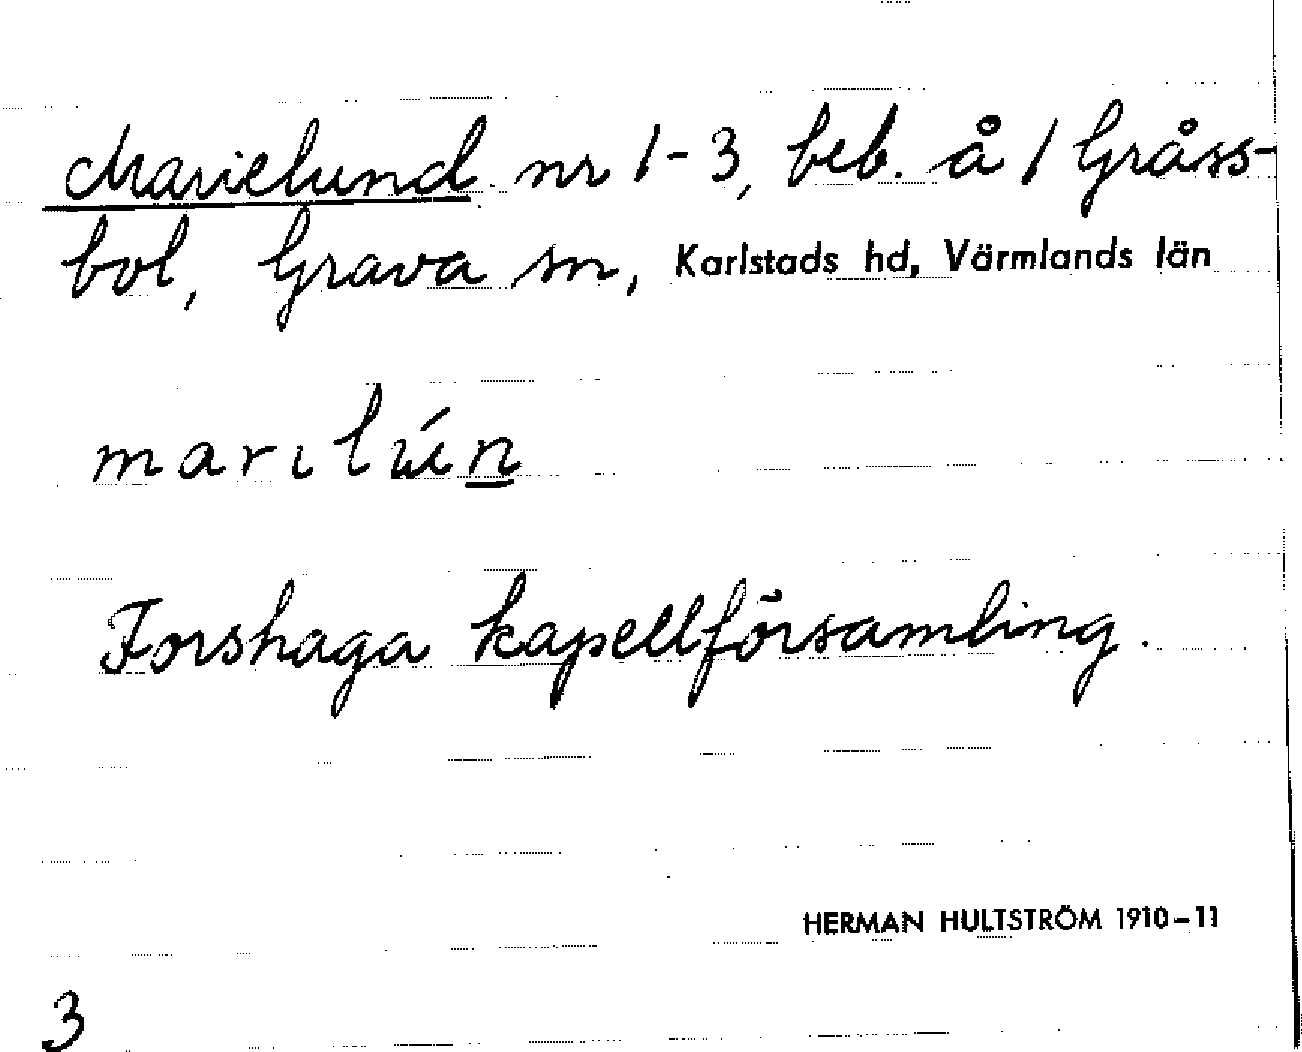 Marielund nr 1-3, beb. å 1 Gråss-
bol, Grava sn, Karlstads hd, Värmlands län
marılún
Forshaga kapellförsamling.
HERMAN HULTSTRÖM 1910-11
3